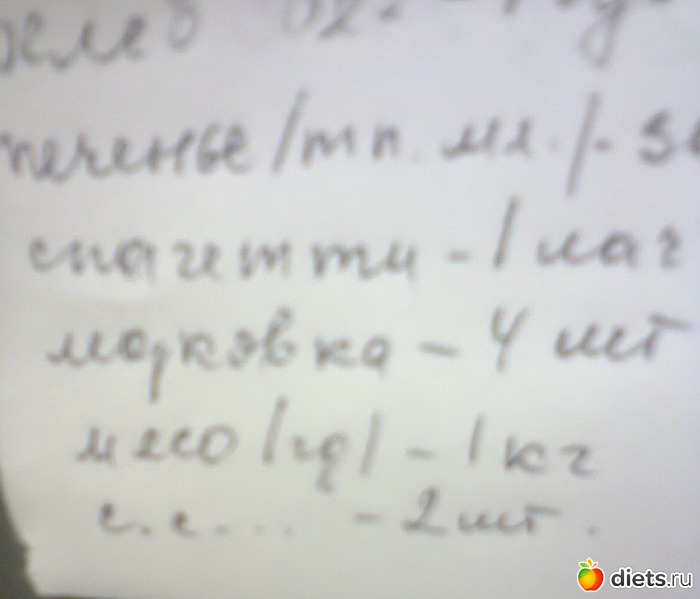 печенье /тп. мл./-
спагетти - 1 пач
морковка - 4 шт
мясо /гд/ - 1 кг
с.с.... - 2 шт.
diets.ru